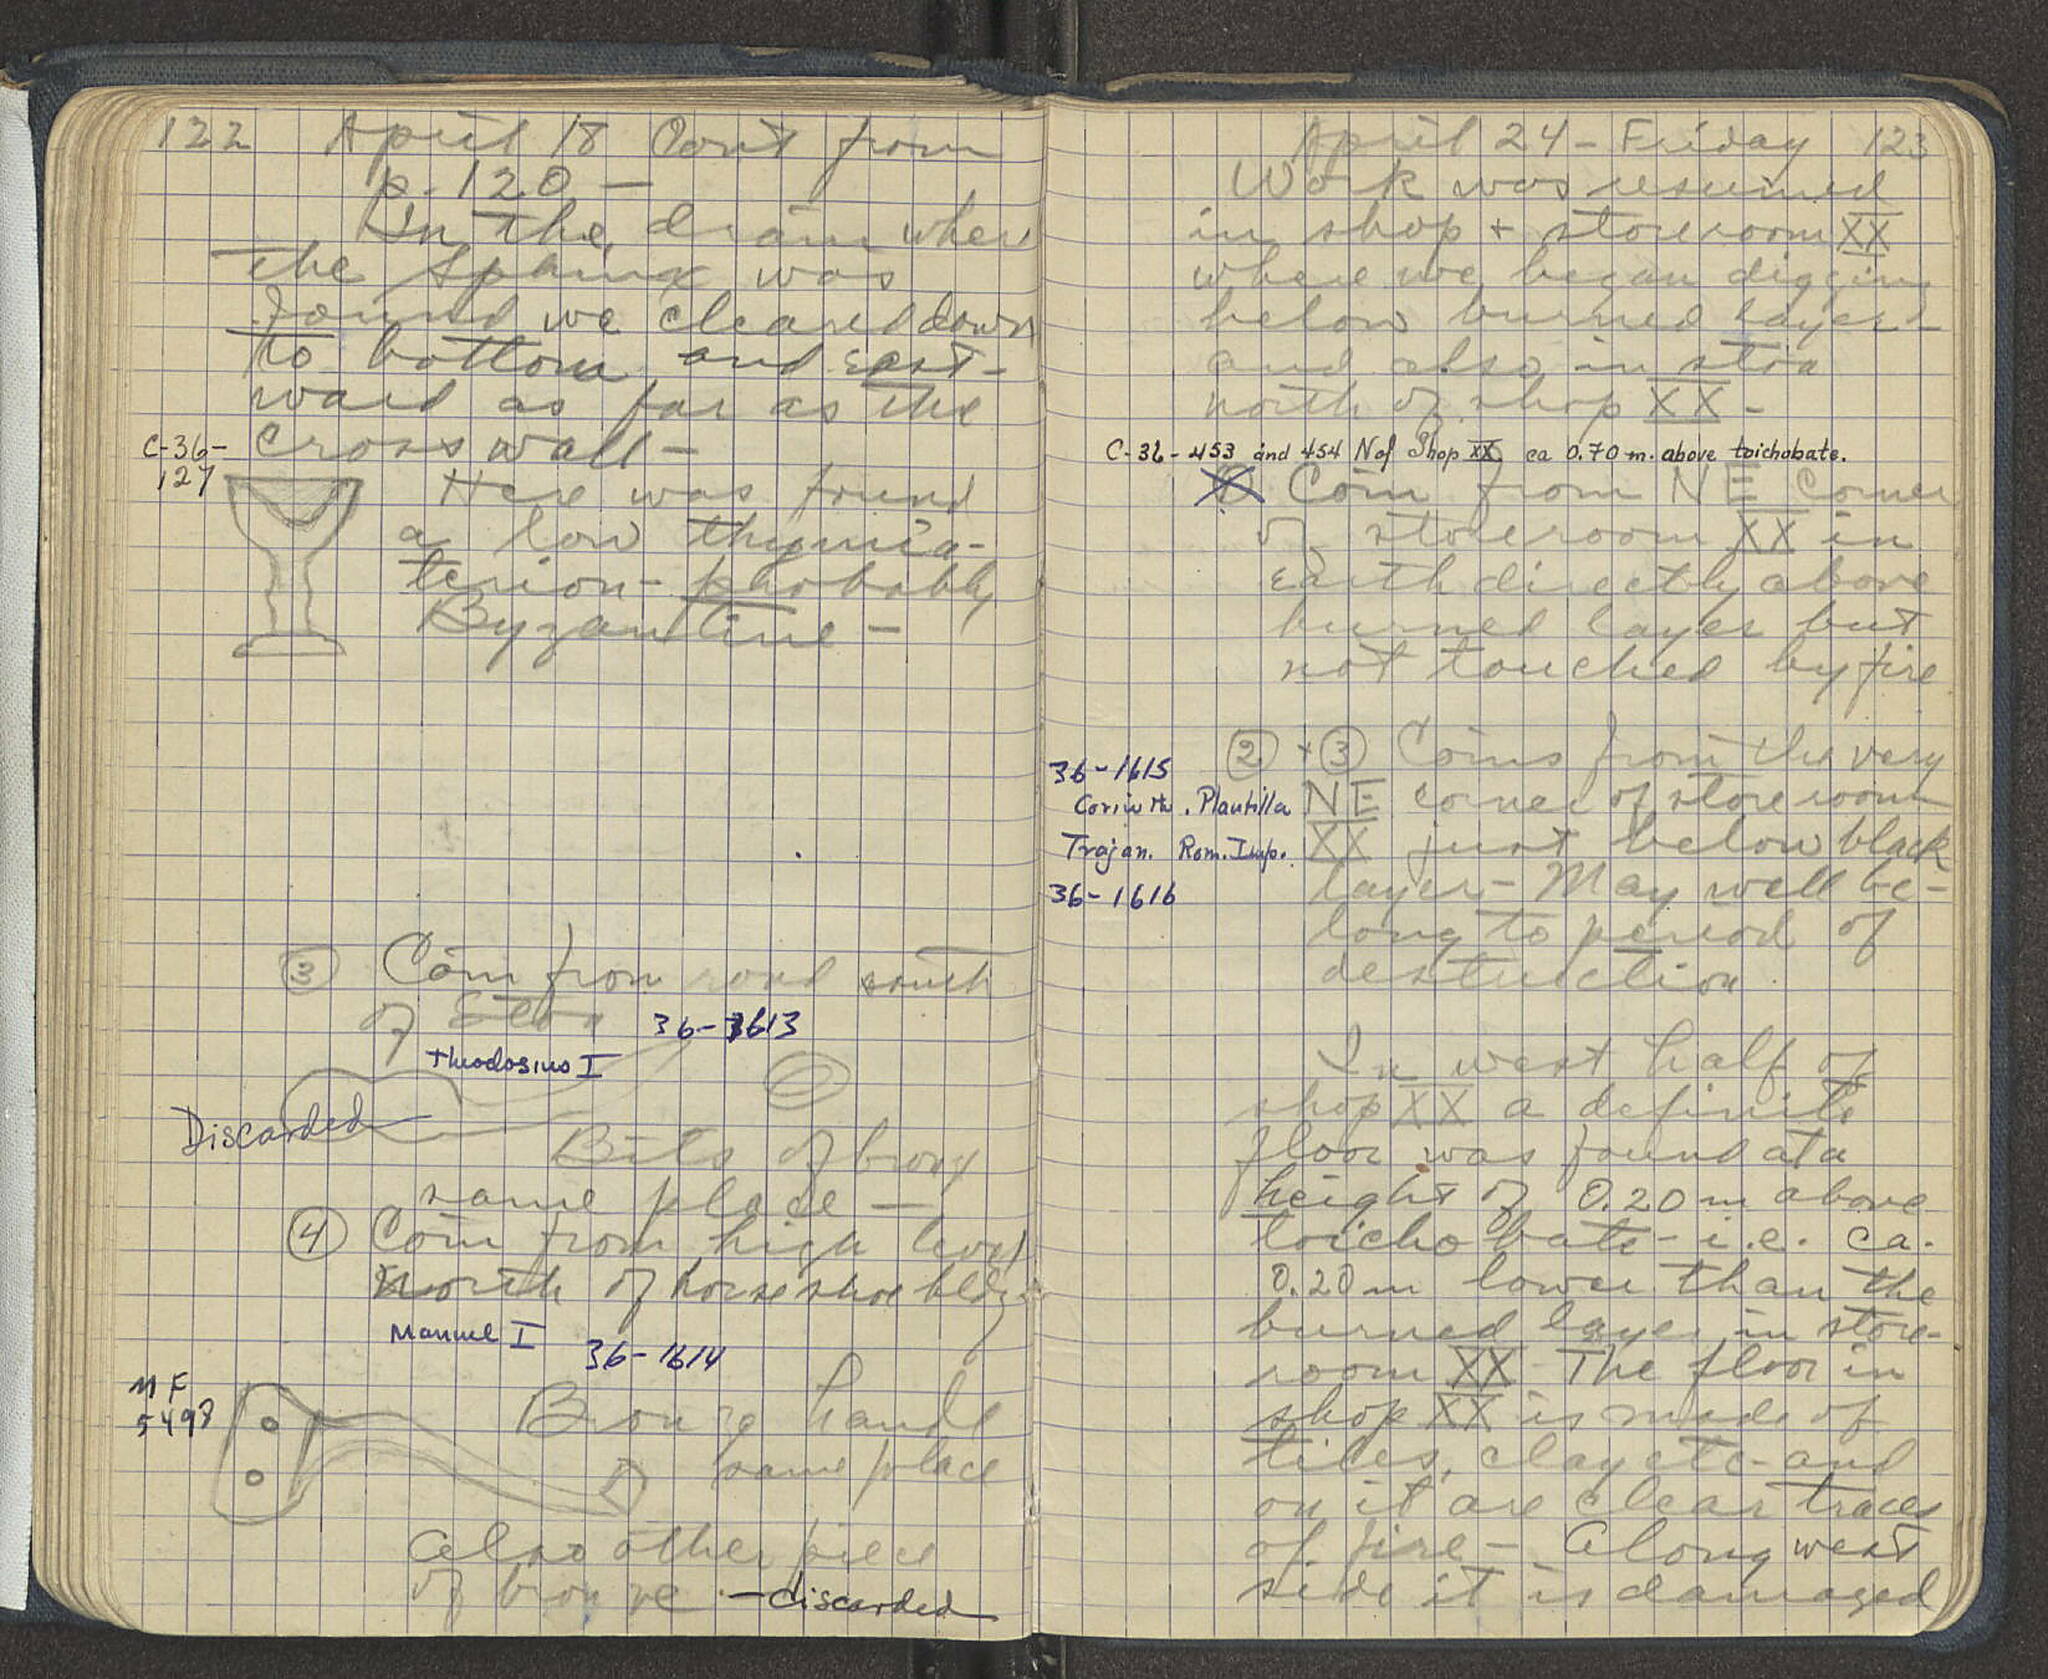 122 April 18 Con't from
p. 120 —
In the drain where
the Sphinx was
found we cleared down
to bottom and east-
ward as far as the
cross wall —
C-36-
127
Here was found
a low thymia-
terion - probably
Byzantine —
③ Coin from road south
of Stoa 36-1613
Theodosius I
Discarded
Bits of bronz
same place —
④ Coin from high level
North of horseshoe bldg
Manuel I 36-1614
MF
5498
Bronze handle
same place
Also other piece
of bronze — discarded
April 24 - Friday 123
Work was resumed
in shop + storeroom XX
where we began digging
below burned layer -
and also in stoa
north of shop XX -
C-36-453 and 454 N of Shop XX ca 0.70 m. above toichobate.
① Coin from NE corner
of storeroom XX in
earth directly above
burned layer but
not touched by fire
② + ③ Coins from the very
36-1615
Corinth. Plautilla NE corner of storeroom
Trajan. Rom. Imp. XX just below black
36-1616 layer - May well be-
long to period of
destruction
In west half of
shop XX a definite
floor was found at a
height of 0.20 m above
toichobate - i.e. ca.
0.20 m lower than the
burned layer in store-
room XX The floor in
shop XX is made of
tiles, clay etc - and
on it are clear traces
of fire - Along west
side it is damaged